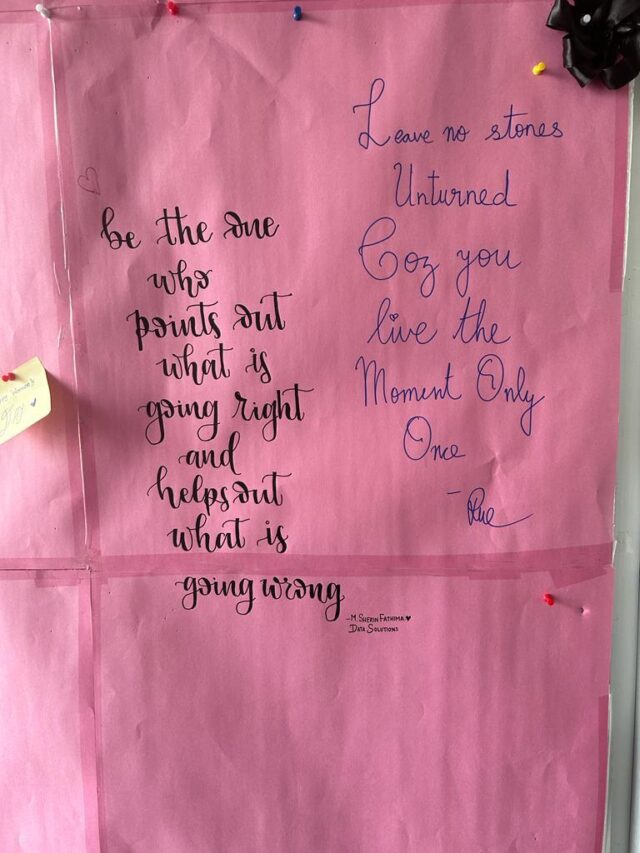 be the one
who
points out
what is
going right
and
helps out
what is
going wrong
-M. Sherin Fathima
Data Solutions
Leave no stones
Unturned
Coz you
live the
Moment Only
Once